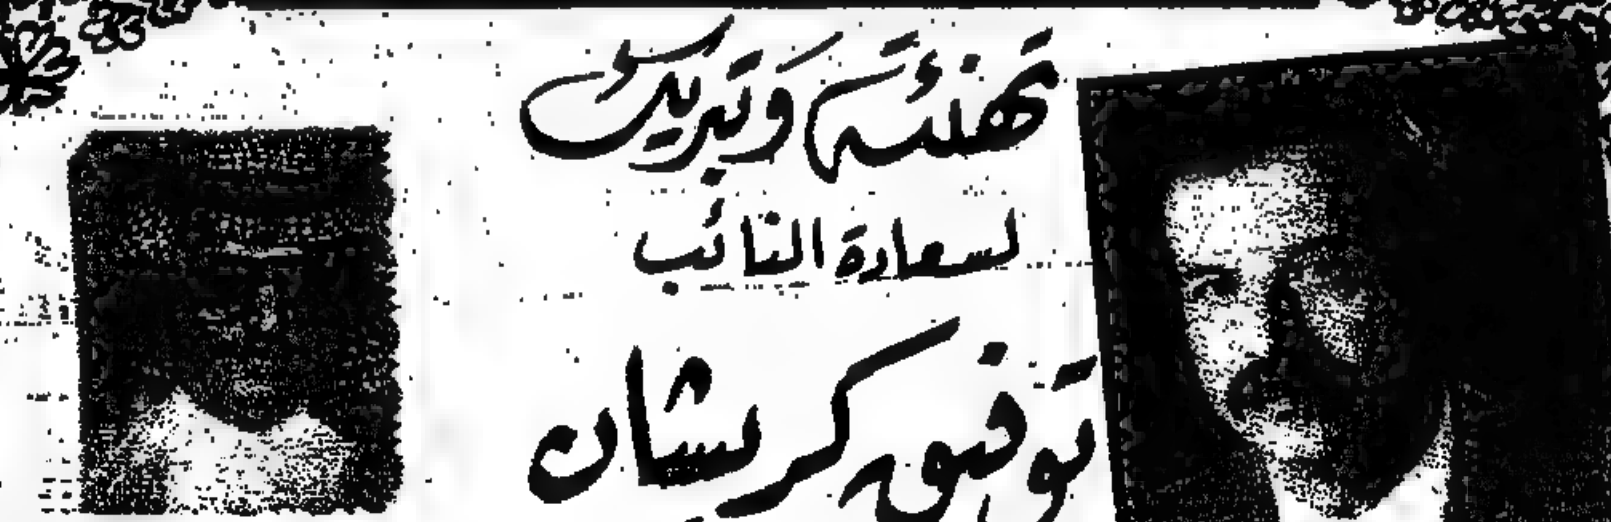 تهنئة وتبريك
لسعادة النائب
توفيق كريشان